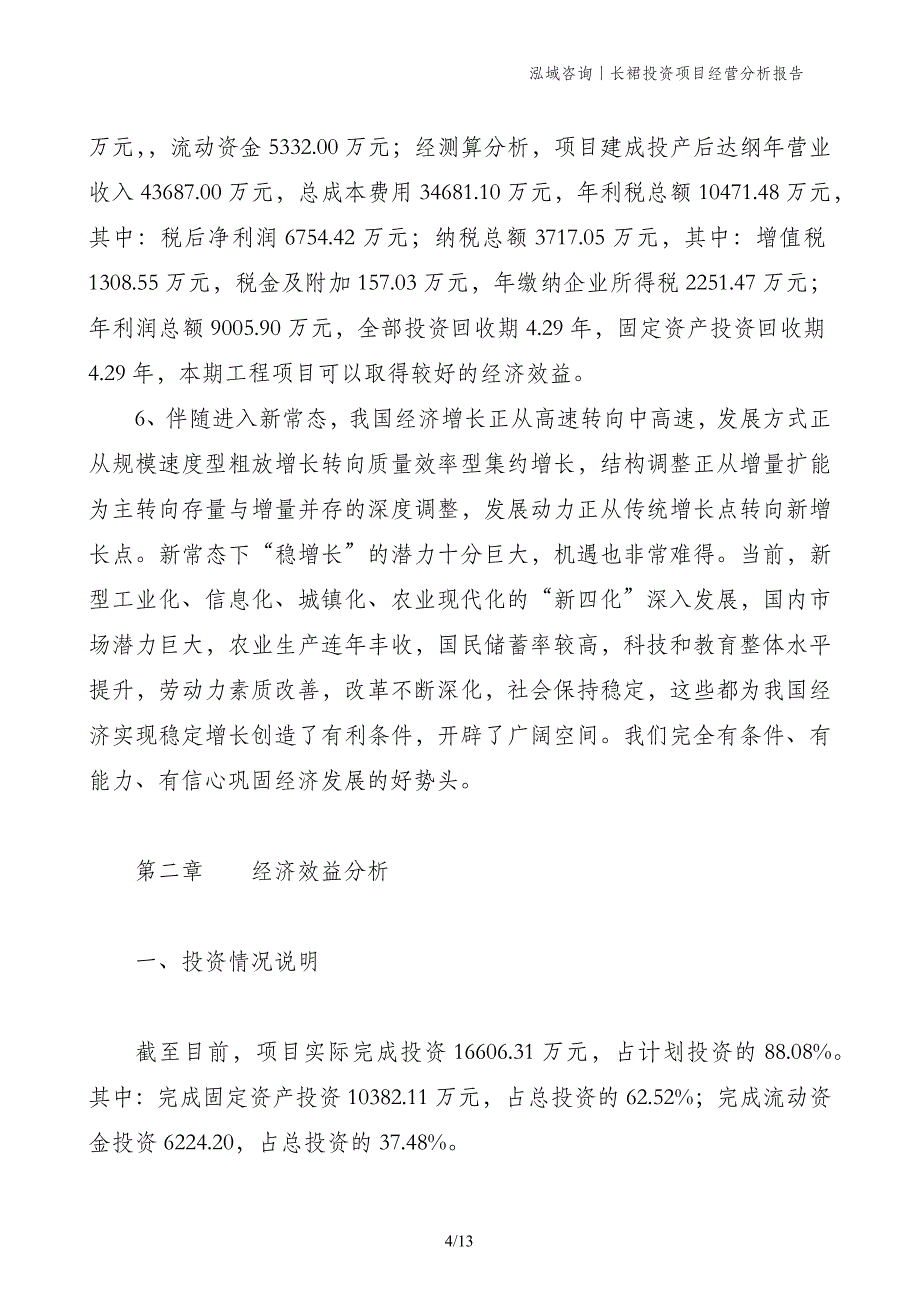 泓域咨询｜长裙投资项目经营分析报告
万元，，流动资金 5332.00 万元；经测算分析，项目建成投产后达纲年营业
收入 43687.00 万元，总成本费用 34681.10 万元，年利税总额 10471.48 万元，
其中：税后净利润 6754.42 万元；纳税总额 3717.05 万元，其中：增值税
1308.55 万元，税金及附加 157.03 万元，年缴纳企业所得税 2251.47 万元；
年利润总额 9005.90 万元，全部投资回收期 4.29 年，固定资产投资回收期
4.29 年，本期工程项目可以取得较好的经济效益。
6、伴随进入新常态，我国经济增长正从高速转向中高速，发展方式正
从规模速度型粗放增长转向质量效率型集约增长，结构调整正从增量扩能
为主转向存量与增量并存的深度调整，发展动力正从传统增长点转向新增
长点。新常态下“稳增长”的潜力十分巨大，机遇也非常难得。当前，新
型工业化、信息化、城镇化、农业现代化的“新四化”深入发展，国内市
场潜力巨大，农业生产连年丰收，国民储蓄率较高，科技和教育整体水平
提升，劳动力素质改善，改革不断深化，社会保持稳定，这些都为我国经
济实现稳定增长创造了有利条件，开辟了广阔空间。我们完全有条件、有
能力、有信心巩固经济发展的好势头。
第二章　　经济效益分析
一、投资情况说明
截至目前，项目实际完成投资 16606.31 万元，占计划投资的 88.08%。
其中：完成固定资产投资 10382.11 万元，占总投资的 62.52%；完成流动资
金投资 6224.20，占总投资的 37.48%。
4/13